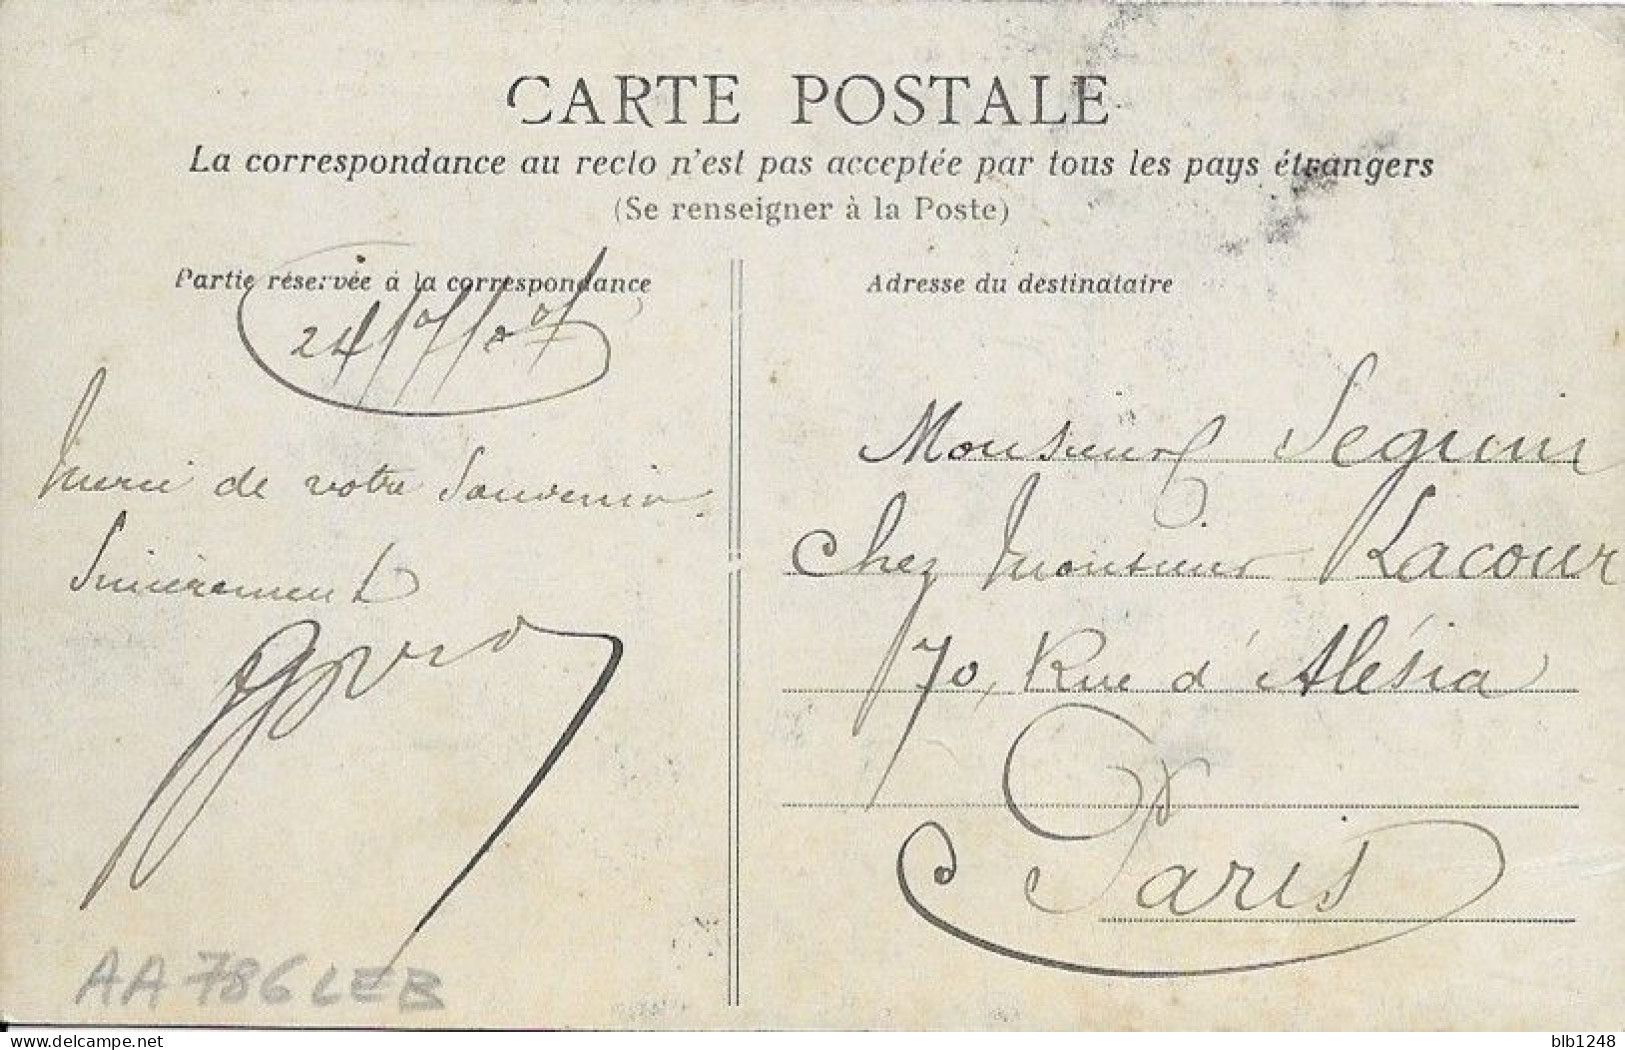 CARTE POSTALE
La correspondance au recto n'est pas acceptée par tous les pays étrangers
(Se renseigner à la Poste)
Partie réservée à la correspondance
Adresse du destinataire
Merci de votre Souvenir.
Sincèrement
Monsieur Seguin
Chez Monsieur Lacour
70, Rue d'Alésia
Paris
AA 786 LEB
www.delcampe.net
blb1248